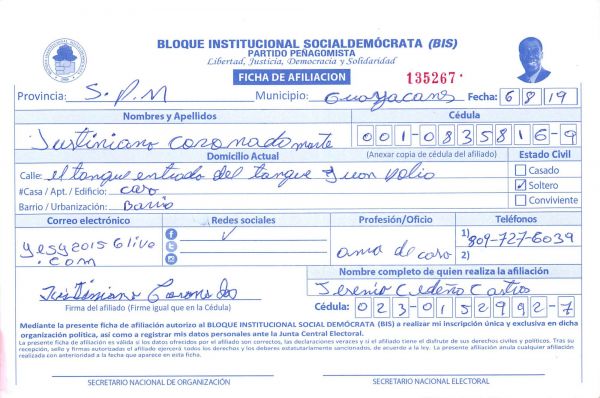 BLOQUE INSTITUCIONAL SOCIALDEMÓCRATA (BIS)
PARTIDO PEÑAGOMISTA
Libertad, Justicia, Democracia y Solidaridad
FICHA DE AFILIACION
135267
Provincia: S.P.M Municipio: Guayacanes Fecha: 6 8 19
Nombres y Apellidos Cédula
Justiniano coronado monte 001-0835816-9
Domicilio Actual (Anexar copia de cédula del afiliado) Estado Civil
Calle: el tanque entrada del tanque Juon dolio Casado
#Casa / Apt. / Edificio: caro Soltero
Barrio / Urbanización: Barrio Conviviente
Correo electrónico Redes sociales Profesión/Oficio Teléfonos
yesy2015@live ama de caro 1) 809-727-6039
.com 2)
Nombre completo de quien realiza la afiliación
Justiniano Coronado Jerenio Cedeño Castro
Firma del afiliado (Firme igual que en la Cédula) Cédula: 023-0152992-7
Mediante la presente ficha de afiliación autorizo al BLOQUE INSTITUCIONAL SOCIAL DEMÓCRATA (BIS) a realizar mi inscripción única y exclusiva en dicha
organización política, así como a registrar mis datos personales ante la Junta Central Electoral.
La presente ficha de afiliación es válida si los datos ofrecidos por el afiliado son correctos, las declaraciones veraces y si el afiliado tiene el disfrute de sus derechos civiles y políticos. Tras su
recepción, sello y firmas autorizadas el afiliado ejercerá todos los derechos y los deberes estatutariamente sancionados, de acuerdo a la ley. La presente afiliación anula cualquier afiliación
realizada con anterioridad a la fecha que aparece en esta ficha.
SECRETARIO NACIONAL DE ORGANIZACIÓN SECRETARIO NACIONAL ELECTORAL